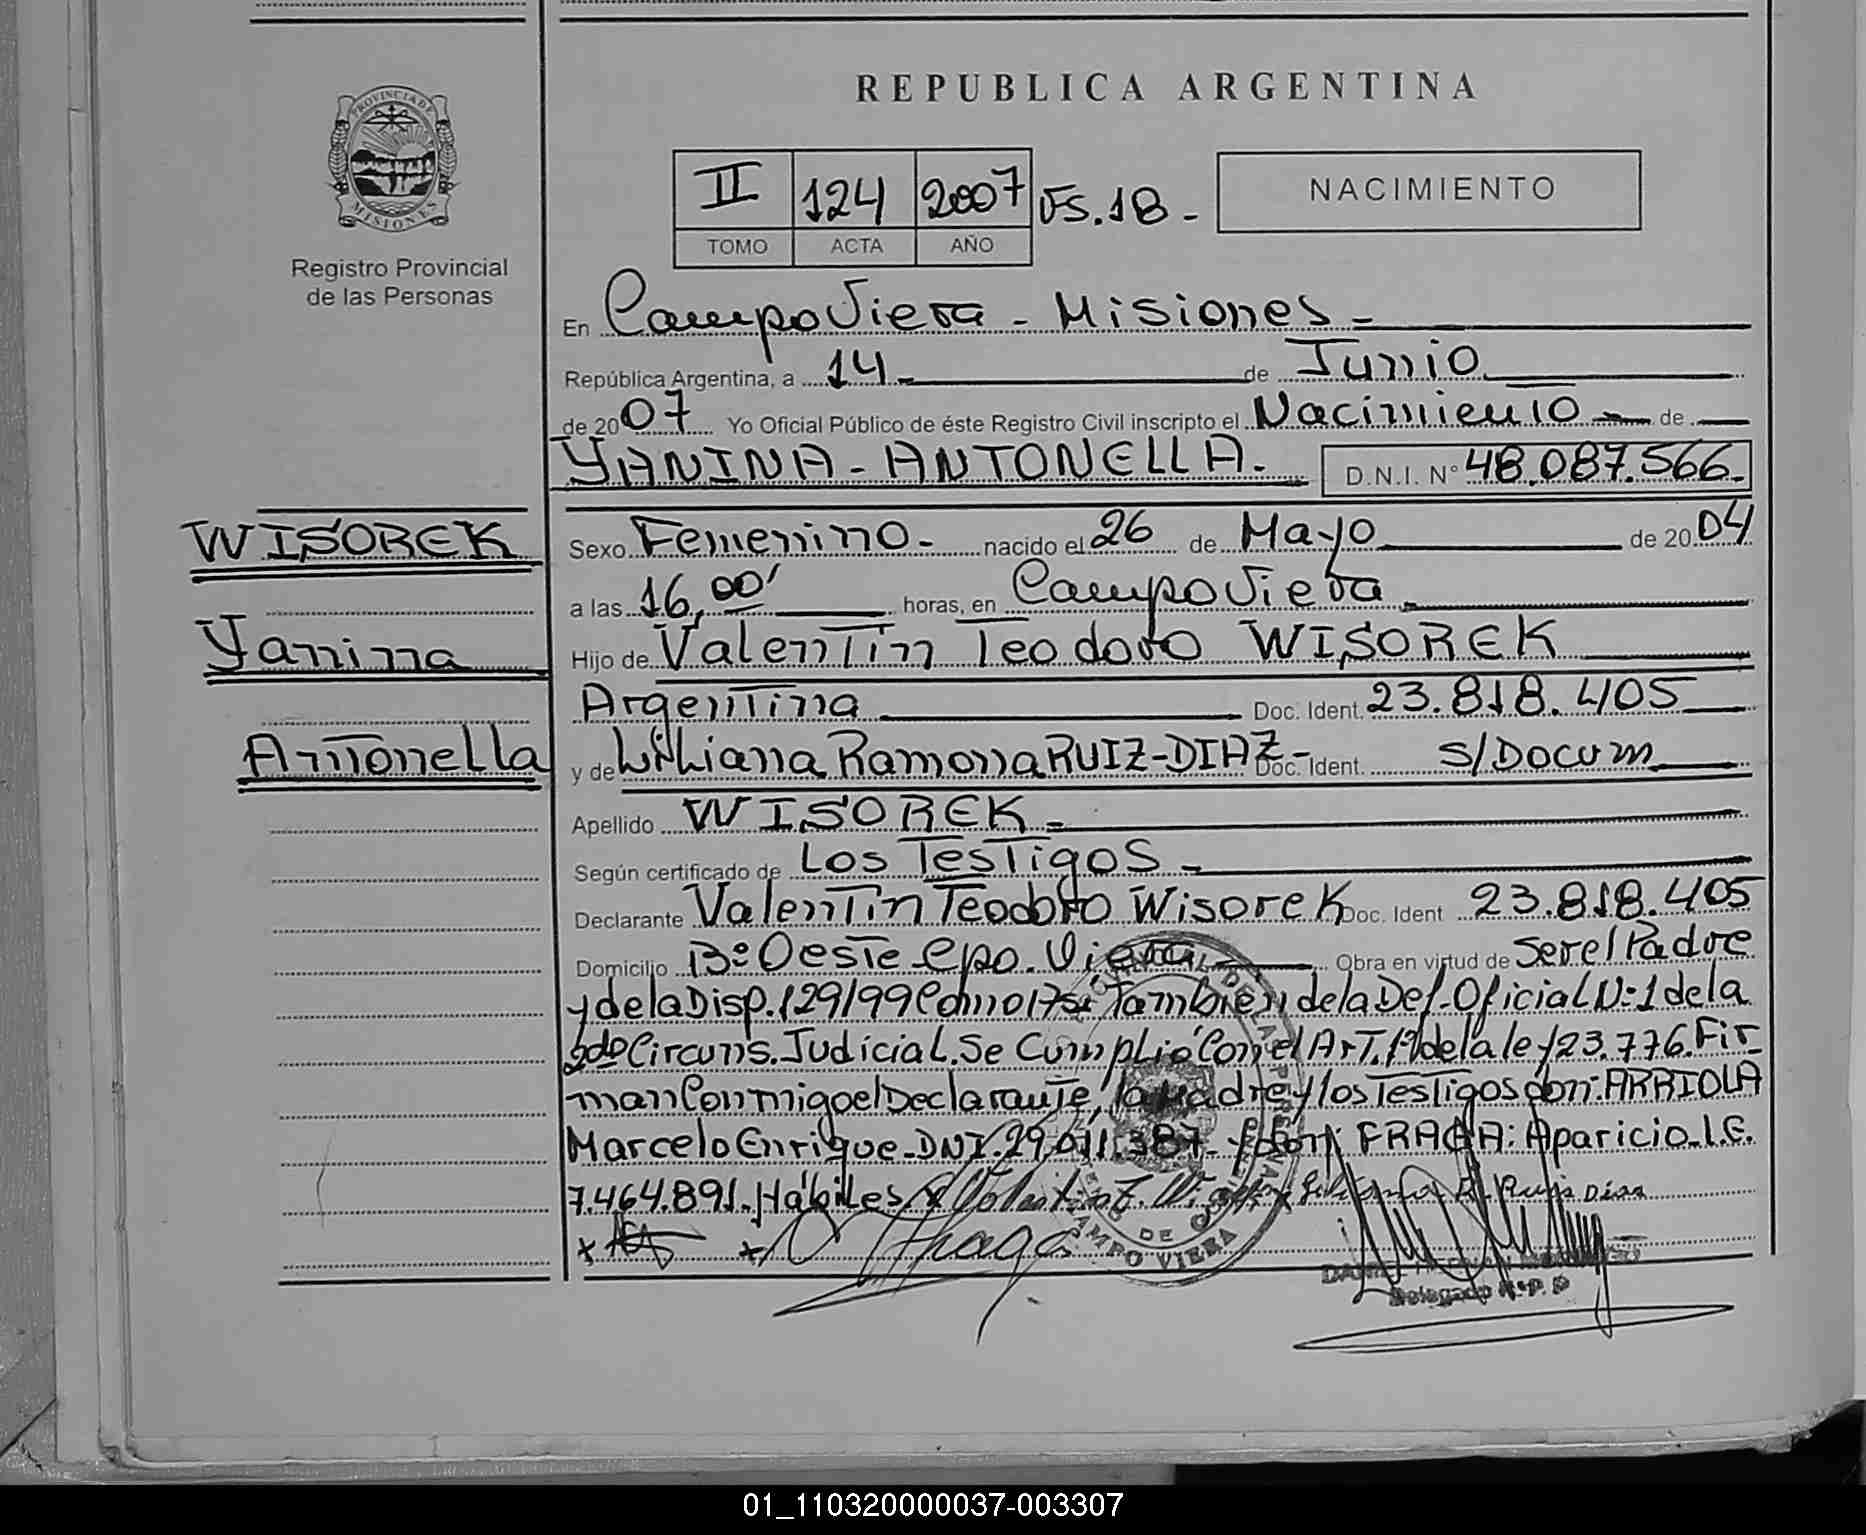 REPUBLICA ARGENTINA
PROVINCIA DE MISIONES
Registro Provincial
de las Personas
II 124 2007 FS.18-
TOMO ACTA AÑO
NACIMIENTO
En Campo Viera - Misiones -
República Argentina, a 14 - de Junio
de 2007 Yo Oficial Público de éste Registro Civil inscripto el Nacimiento - de
YANINA - ANTONELLA. D.N.I. N° 48.087.566-
WISOREK
Yanina
Antonella
Sexo Femenino - nacido el 26 de Mayo de 2004
a las 16,00' horas, en Campo Viera
Hijo de Valentín Teodoro WISOREK
Argentina Doc. Ident. 23.818.405
y de Liliana Ramona RUIZ-DIAZ- Doc. Ident. S/Docum
Apellido WISOREK -
Según certificado de Los Testigos -
Declarante Valentín Teodoro Wisorek Doc. Ident 23.818.405
Domicilio Bº Oeste Cpo. Viera Obra en virtud de Ser el Padre
y de la Disp. 129/99 Como así También de la Def. Oficial N:1 de la
2da Circuns. Judicial. Se Cumplió Con el ArT. 1º de la ley 23.776. Fir
man Conmigo el Declarante, la Madre y los Testigos don: ARRIOLA
Marcelo Enrique - DNI. 29.011.387- y don: FRAGA: Aparicio - L.E.
7.464.891. Hábiles
CAMPO VIERA
Delegado R.P.P
01_110320000037-003307